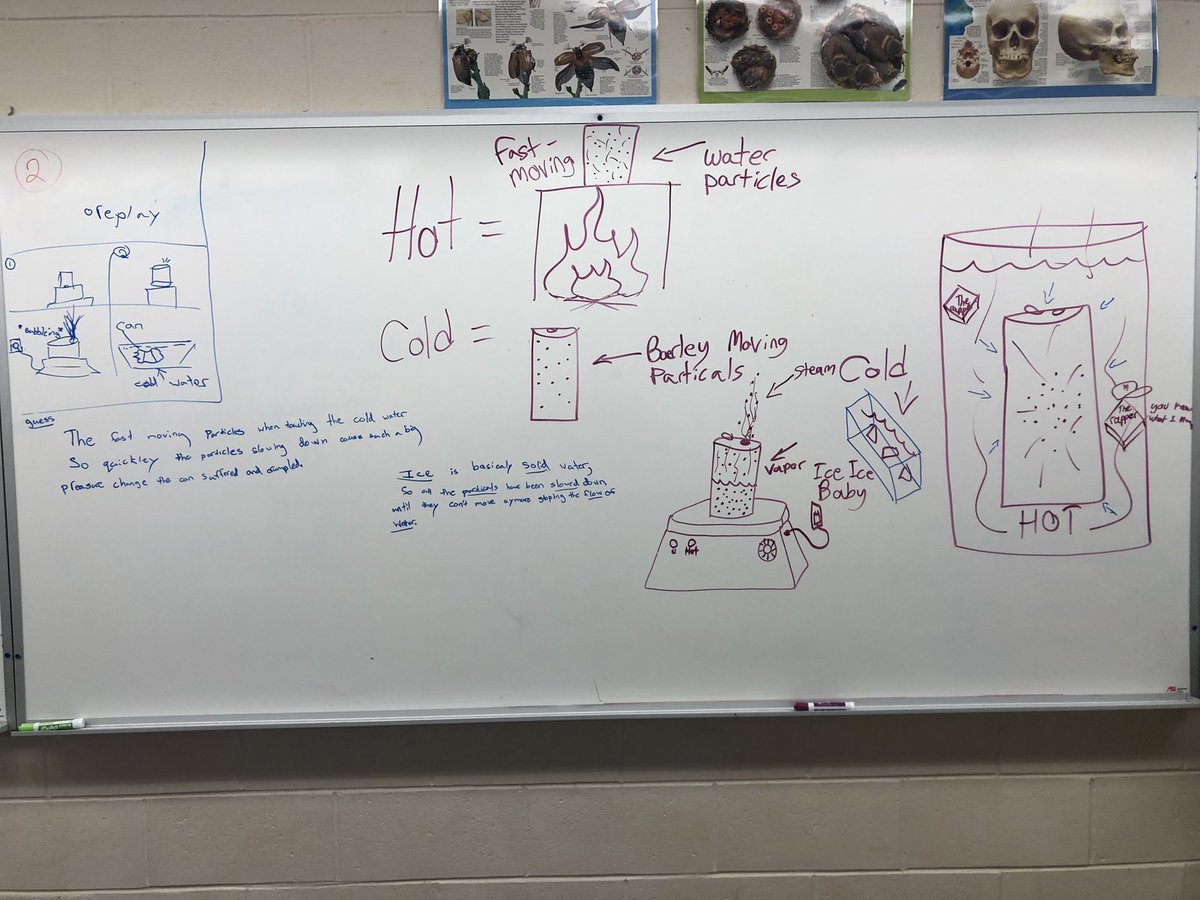 2
replay
1
2
*Bubbleing*
can
cold water
guess
The fast moving particles when touching the cold water
So quickley the particles slowing down cause such a big
preasure change the can suffered and crumpled.
Hot =
Fast-
moving
water
particles
Cold =
Barley Moving
Particals
Ice is basicaly solid water,
So all the particals have been slowed down
until they can't move aymore stoping the flow of
Water.
steam
vapor
Hot
Cold
Ice Ice
Baby
The
rapper
The
rapper
you know
what I
HOT